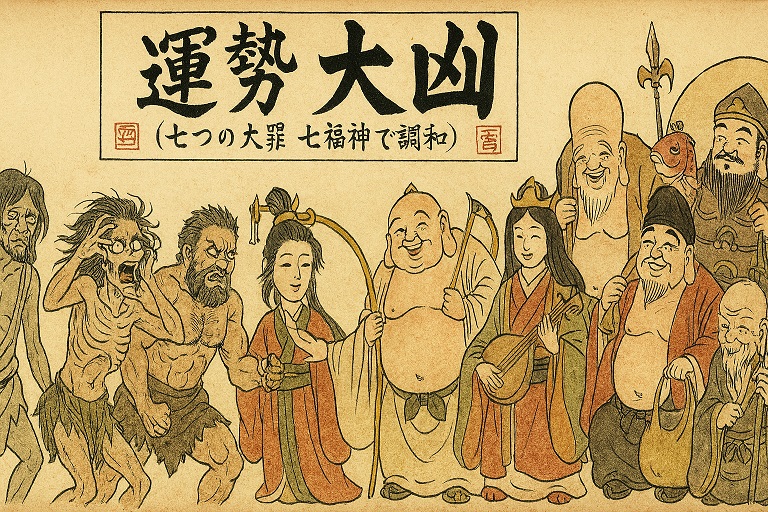 運勢 大凶
(七つの大罪 七福神で調和)